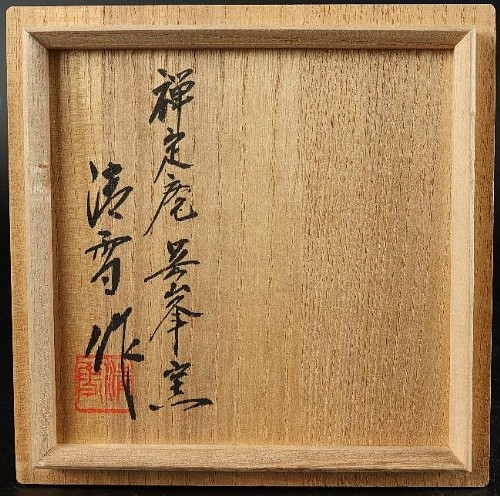 禅定庵呉峯窯
清雪作